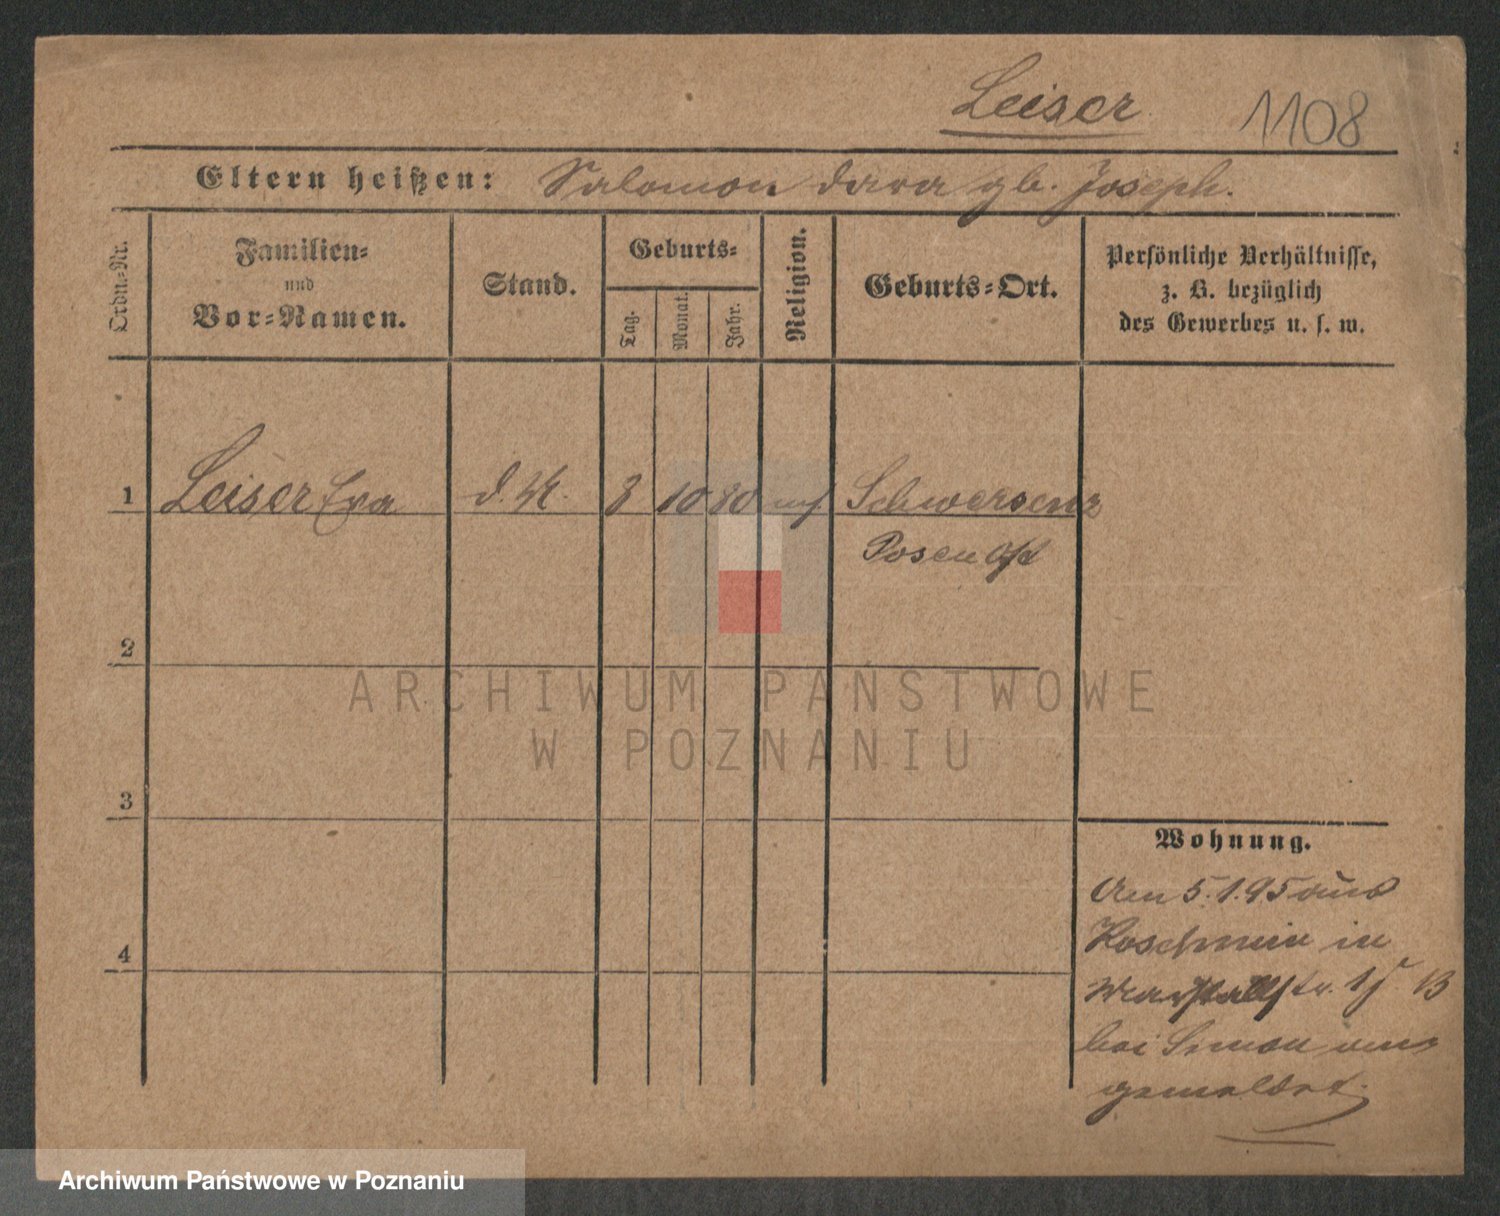 Leiser 1108
Eltern heißen: Salomon Dava gb. Joseph.
Ordn.-Nr.
Familien-
und
Vor-Namen.
Stand.
Geburts-
Tag.
Monat.
Jahr.
Religion.
Geburts-Ort.
Persönliche Verhältnisse,
z. B. bezüglich
des Gewerbes u. s. w.
1 Leiser Eva 3 10 80 Schwersenz
Posen Ost
2
3
4
Wohnung.
Am 5.1.95 aus
Koschmin in
Marstallstr.
bei Simon
gemeldet.
ARCHIWUM PAŃSTWOWE
W POZNANIU
Archiwum Państwowe w Poznaniu